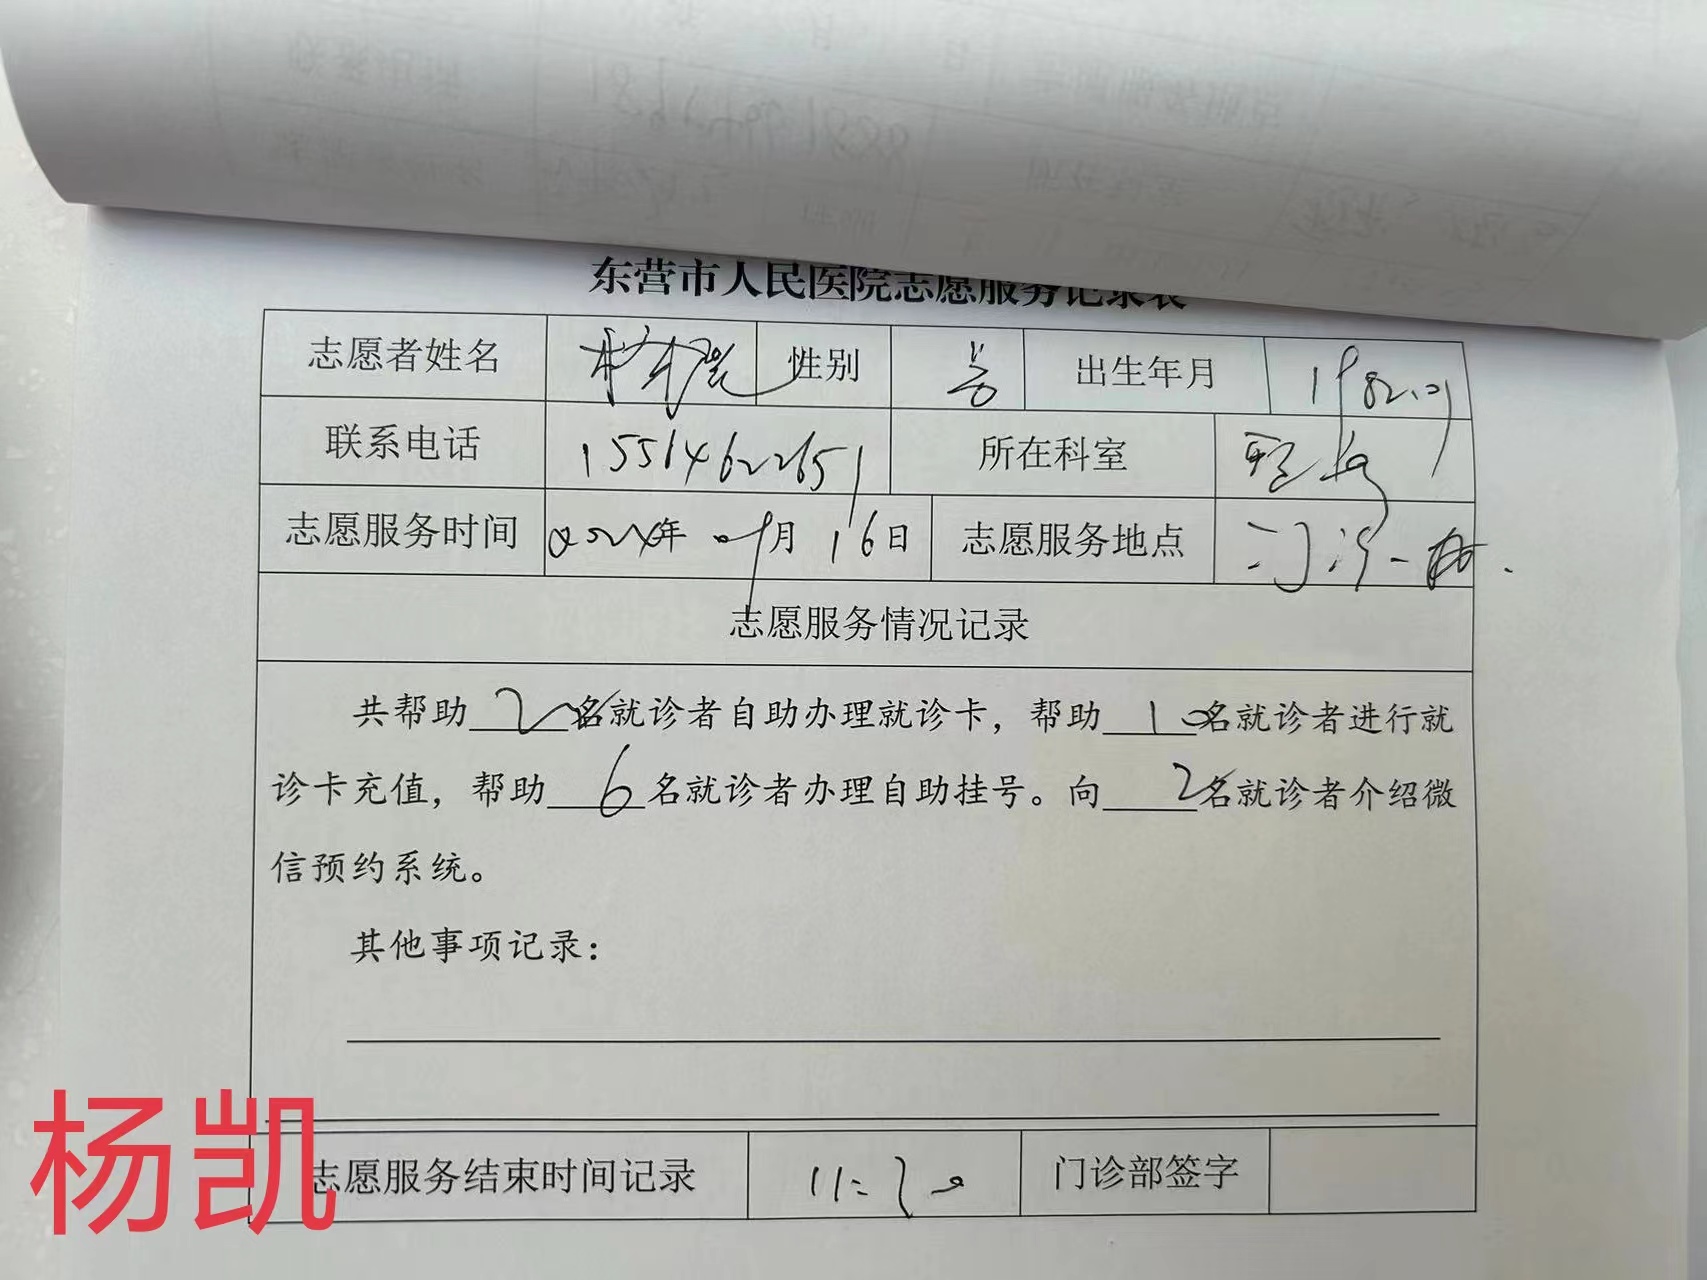 东营市人民医院志愿服务记录表
志愿者姓名 性别 男 出生年月
联系电话 15514622651 所在科室
志愿服务时间 2024年 09月 16日 志愿服务地点 门诊一楼.
志愿服务情况记录
共帮助 2 名就诊者自助办理就诊卡，帮助 10 名就诊者进行就
诊卡充值，帮助 6 名就诊者办理自助挂号。向 2 名就诊者介绍微
信预约系统。
其他事项记录：
杨凯
志愿服务结束时间记录 11:30 门诊部签字